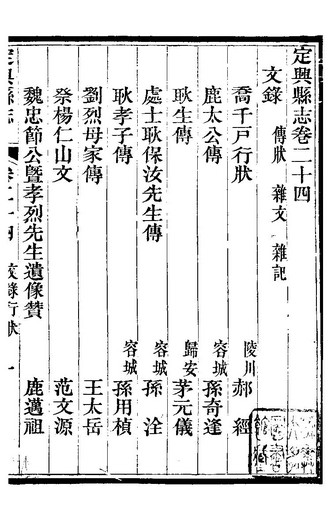 定興縣志卷二十四
文錄 傳狀 雜文 雜記
喬千戶行狀 陵川郝經
鹿太公傳 容城孫奇逢
耿生傳 歸安茅元儀
處士耿保汝先生傳 容城孫洤
耿孝子傳 容城孫用楨
劉烈母家傳 王太岳
祭楊仁山文 范文源
魏忠節公暨孝烈先生遺像贊 鹿邁祖
定興縣志 卷二十四 文錄 行狀 一